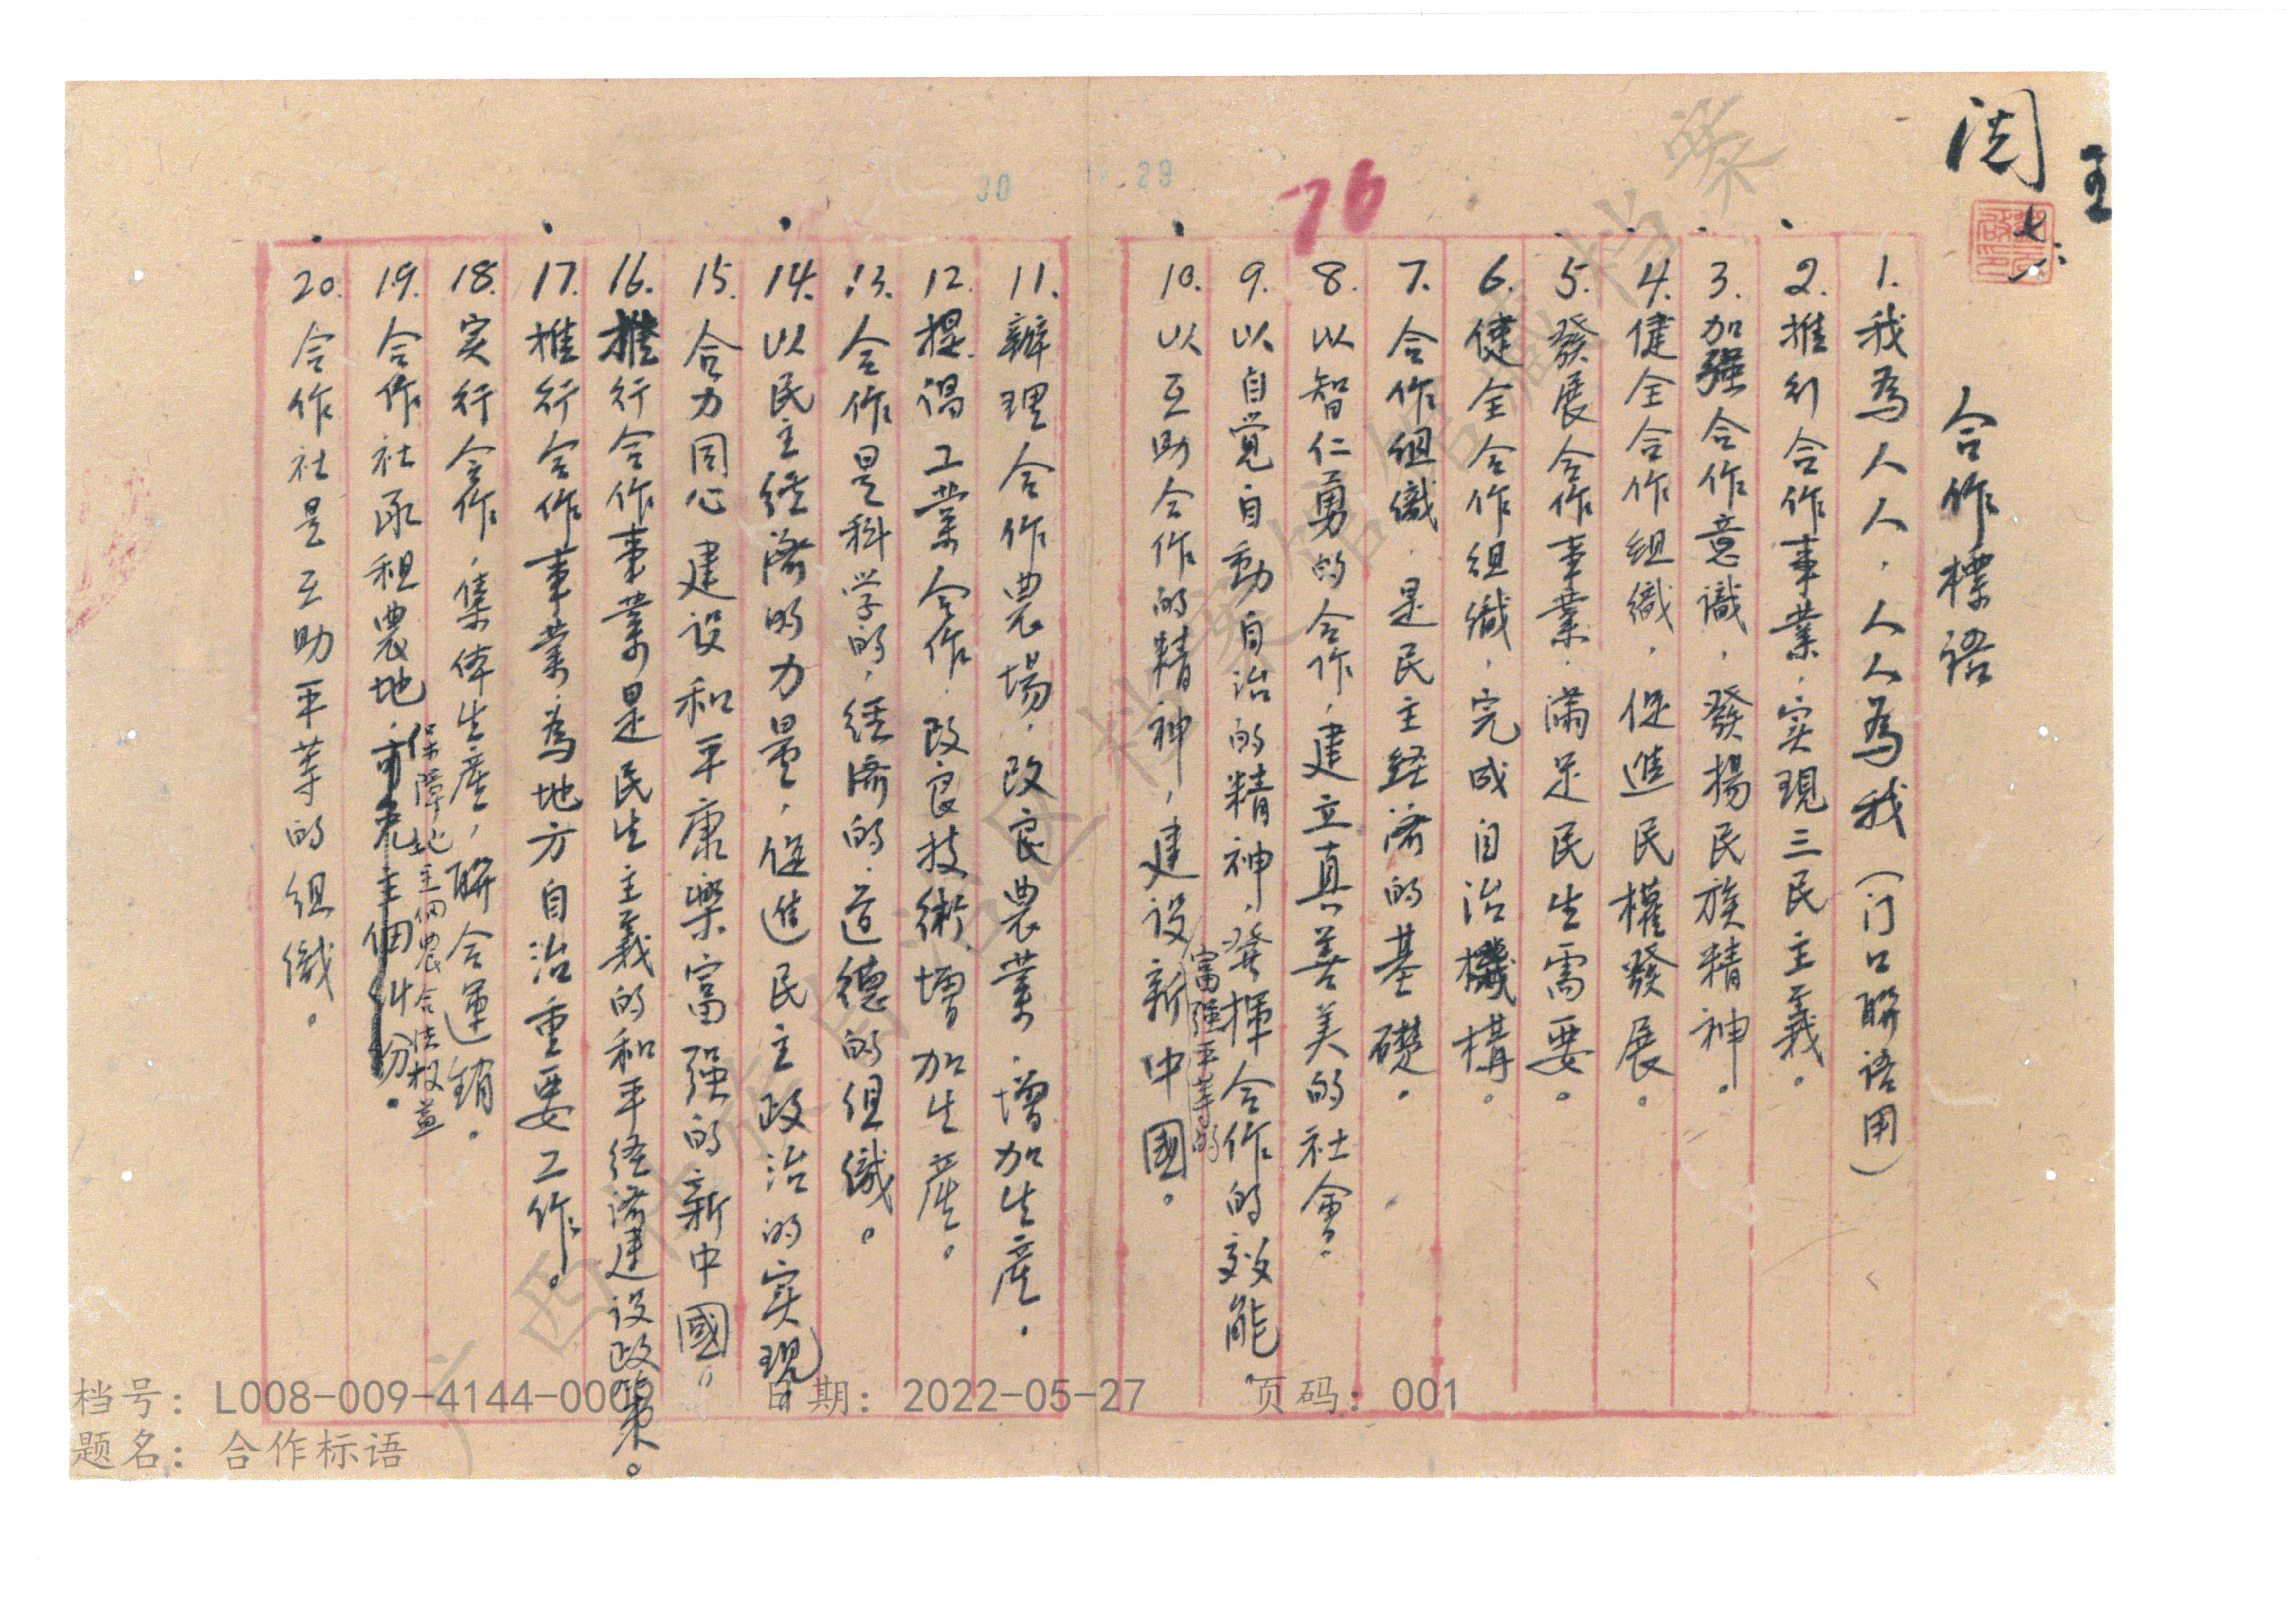 合作標語
1.我為人人，人人為我（门口聯語用）
2.推行合作事業，实現三民主義。
3.加强合作意識，發揚民族精神。
4.健全合作組織，促進民權發展。
5.發展合作事業，滿足民生需要。
6.健全合作組織，完成自治機構。
7.合作組織，是民主経濟的基礎。
8.以智仁勇的合作，建立真善美的社會。
9.以自覚自動自治的精神，發揮合作的效能。
10.以互助合作的精神，建设富强平等的新中國。
11.辦理合作農場，改良農業，增加生產。
12.提倡工業合作，改良技術，增加生產。
13.合作是科学的，経濟的，道德的組織。
14.以民主経濟的力量，促進民主政治的实現。
15.合力同心建设和平康樂富强的新中國。
16.推行合作事業是民生主義的和平経濟建设政策。
17.推行合作事業，為地方自治重要工作。
18.实行合作，集体生產，聯合運销。
19.合作社承租農地，保障地主佃農合法权益
20.合作社是互助平等的組織。
76
30
29
档号：L008-009-4144-000
日期：2022-05-27
页码：001
题名：合作标语